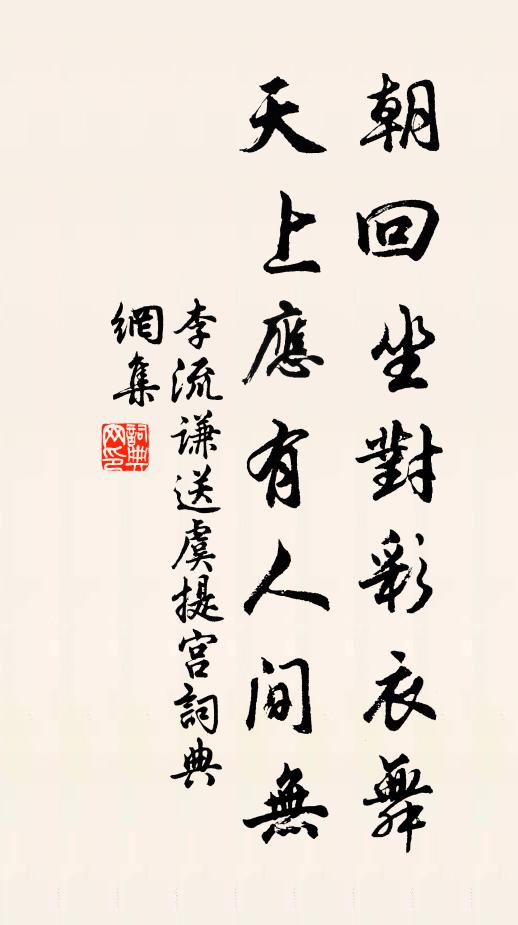 朝回坐對彩衣舞
天上應有人間無
李流謙送虞提宮詞典
網集
詞典網印